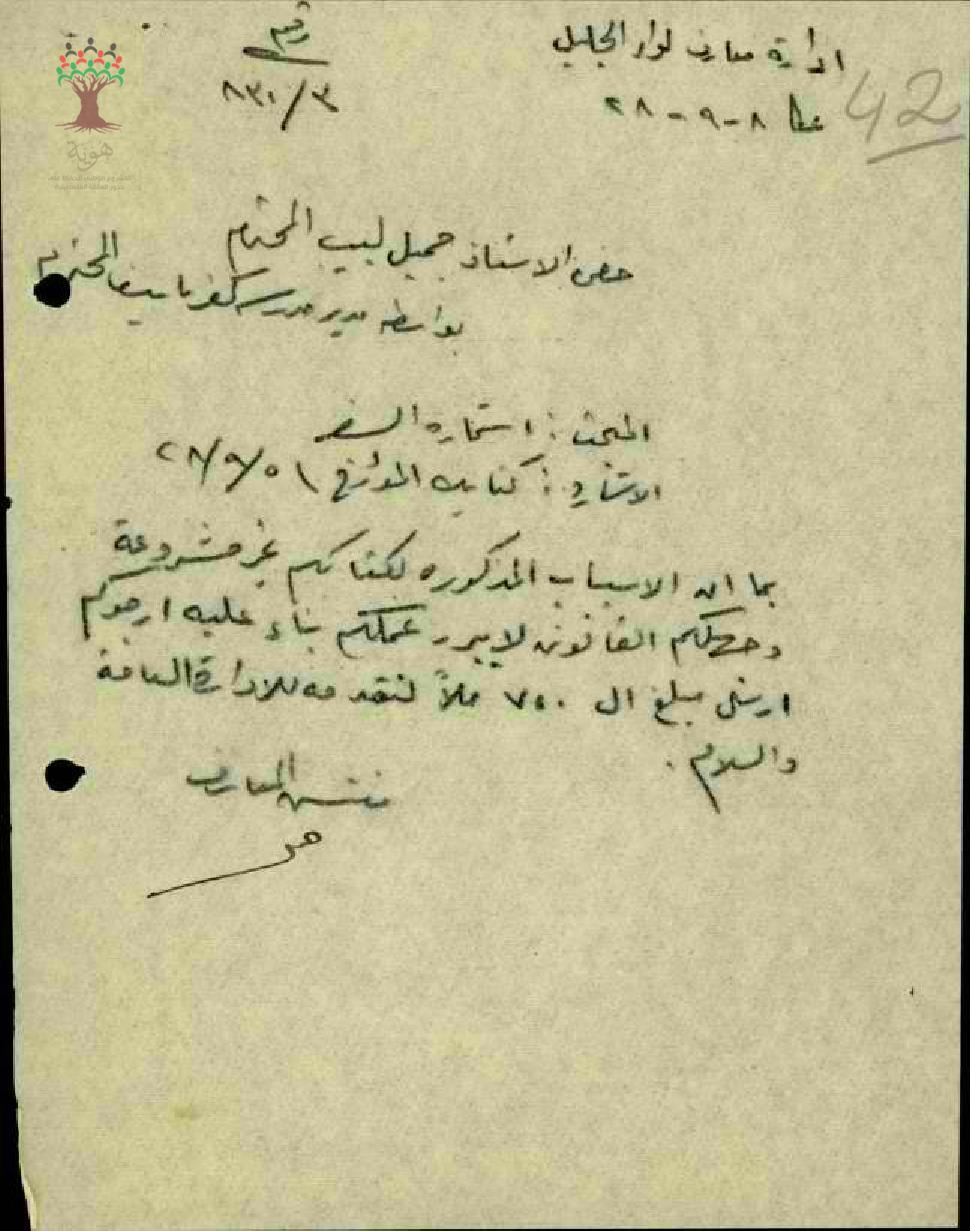 ادارة معارف لواء الجليل
رقم
عكا ٨-٩-٢٨
٨٣٠/٣
42
هوية
حضرة الاستاذ جميل لبيب المحترم
بواسطة مدير مدرسة كفر ياسيف المحترم
المبحث: استمارة السفر
الاشارة: كتابك المؤرخ ٢٨/٩/٥
بما ان الاسباب المذكوره بكتابكم غير مشروعة
وجهلكم القانون لا يبرر عملكم بناء عليه ارجوكم
ارسال مبلغ ال ٧٤٠ ملاً لنقدمه للادارة العامة
والسلام.
مفتش المعارف